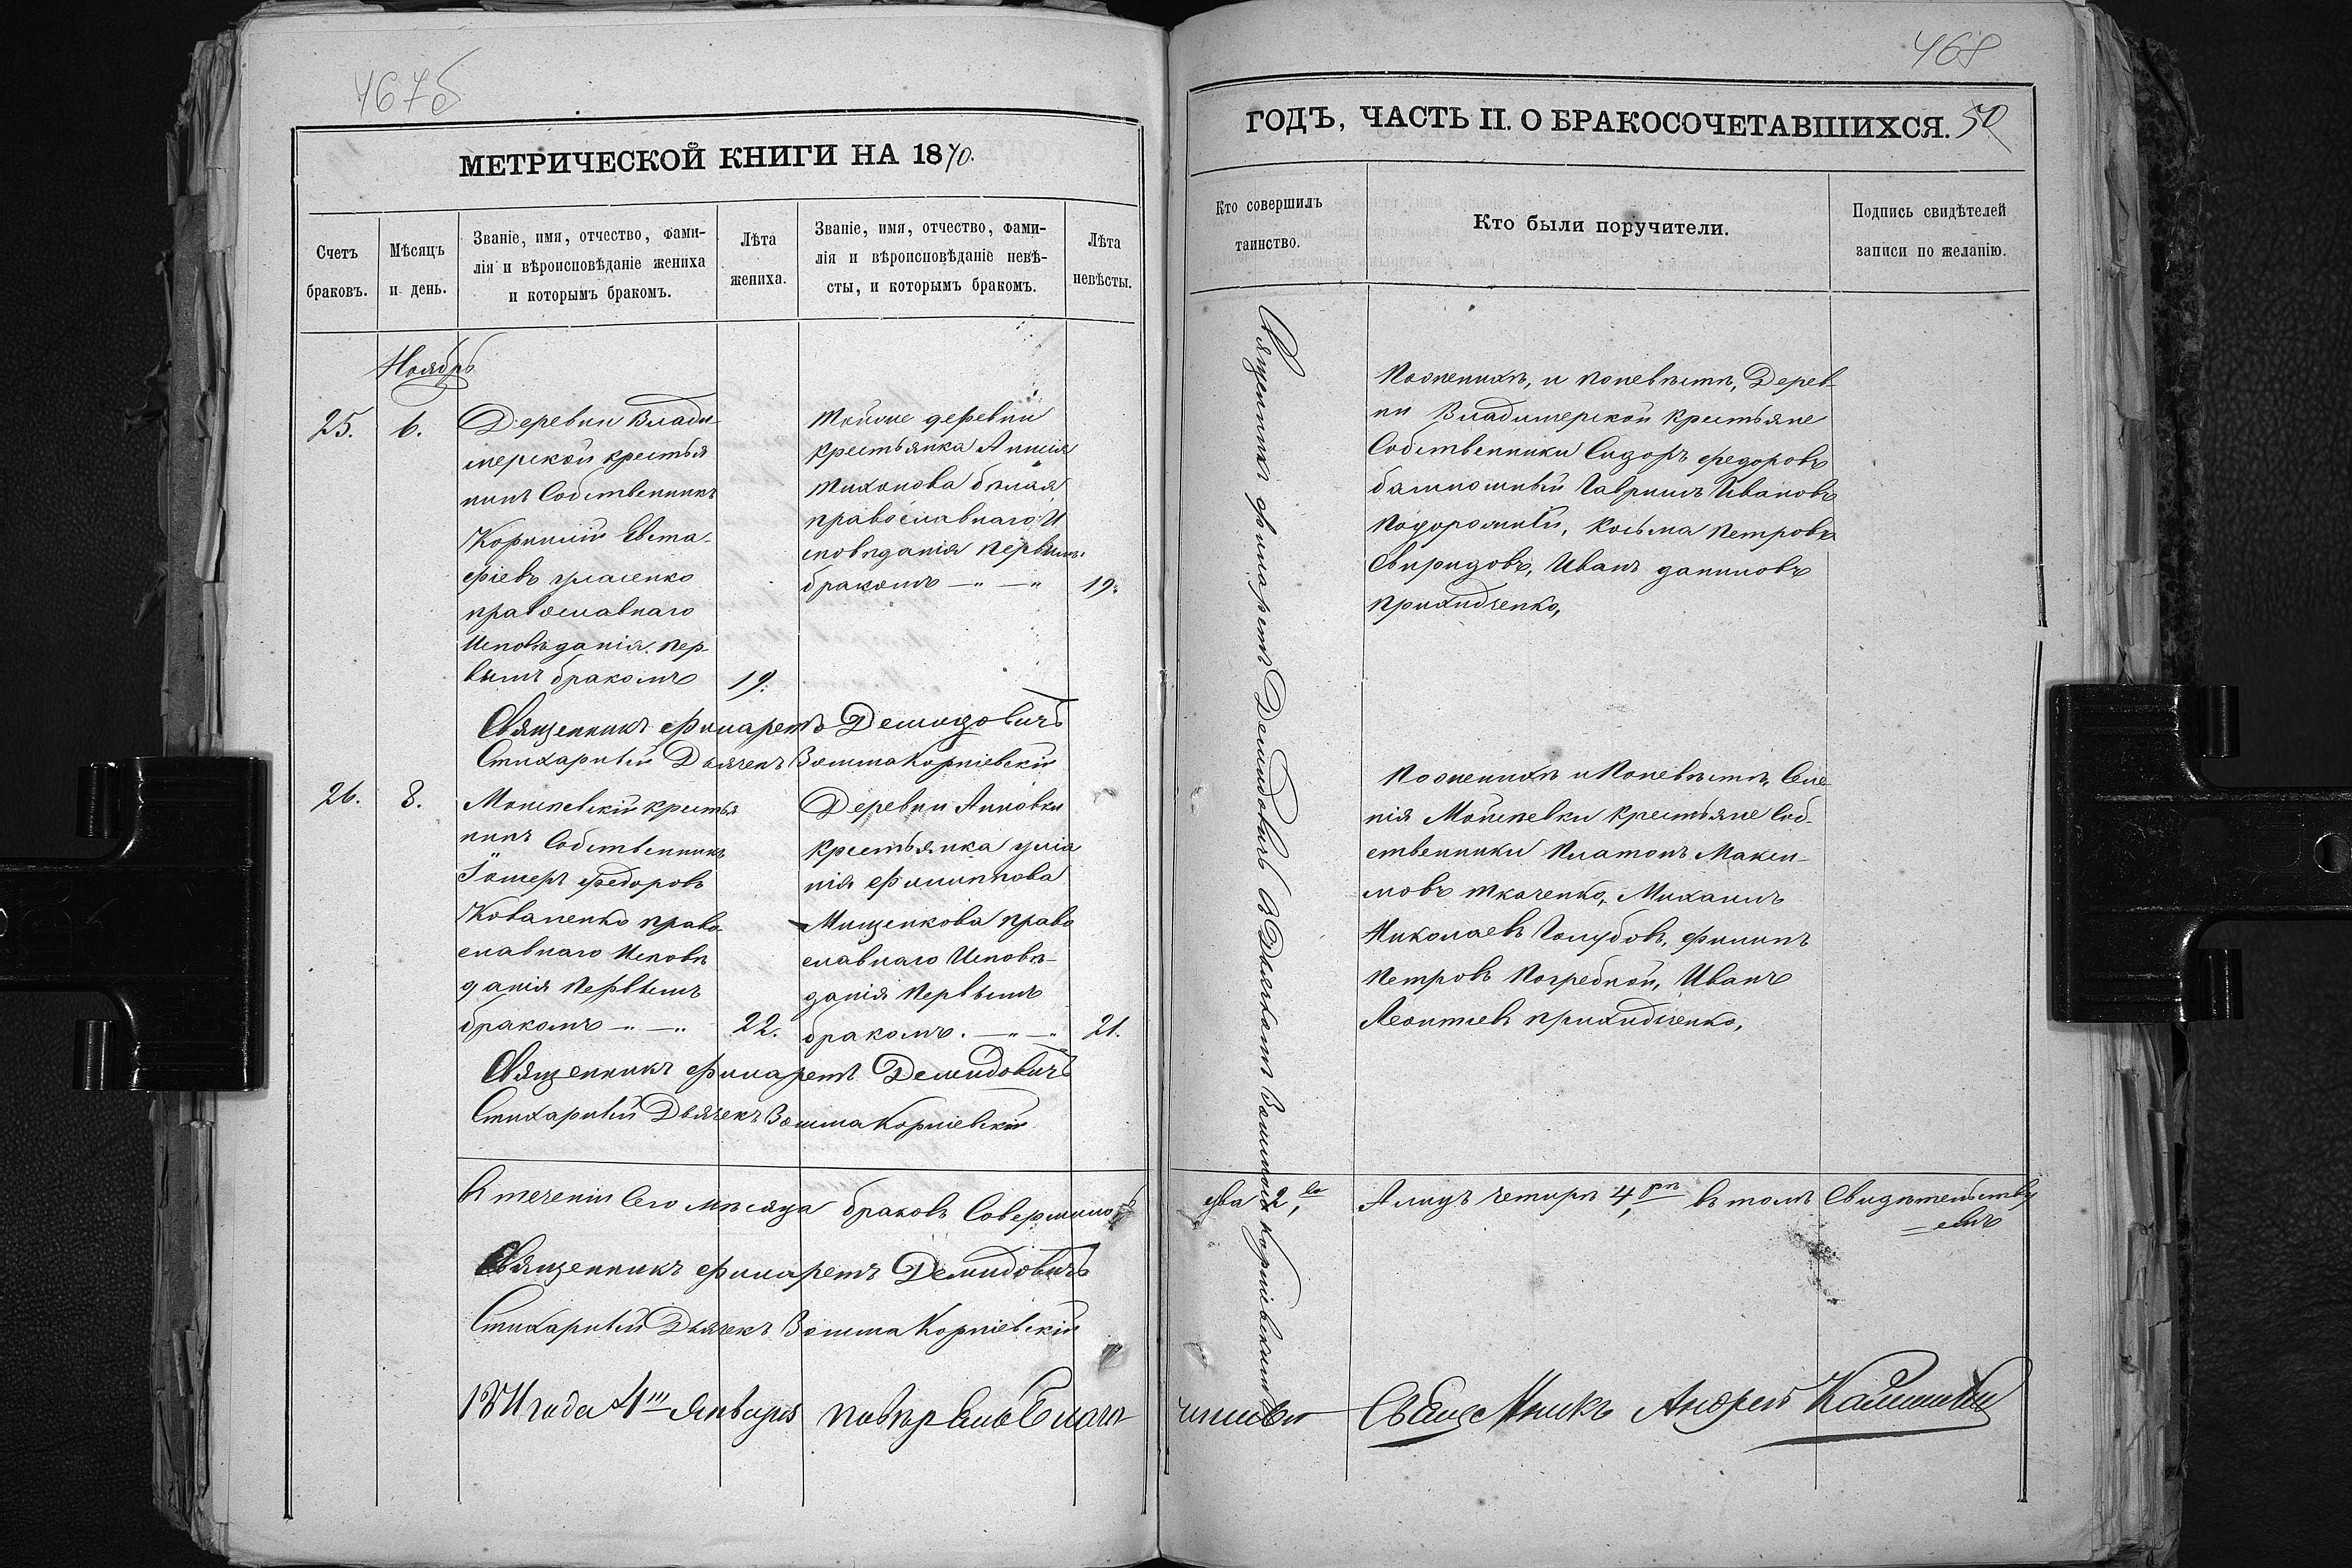 467б
МЕТРИЧЕСКОЙ КНИГИ НА 1870.
Счетъ
браковъ.
Мѣсяцъ
и день.
Званіе, имя, отчество, фами-
лія и вѣроисповѣданіе жениха
и которымъ бракомъ.
Лѣта
жениха.
Званіе, имя, отчество, фами-
лія и вѣроисповѣданіе невѣ-
сты, и которымъ бракомъ.
Лѣта
невѣсты.
Ноябрь
25.
6.
Деревни Влади
мерской крестья
нинъ Собственникъ
Корнилій Евста-
фіевъ
православнаго
Исповѣданія пер-
вымъ бракомъ
19.
Тойже деревни
крестьянка Анисія
Тихонова бѣлая
православнаго И
сповѣданія первымъ
бракомъ — " — "
19.
Священникъ Филаретъ Демидовичъ
Стихарный Дьячекъ Корніевскій
26.
8.
Моисеевскій крестья
нинъ Собственникъ
Федоровъ
Коваленко право-
славнаго Исповѣ
данія Первымъ
бракомъ — " — "
22.
Деревни Анновки
крестьянка уліа
нія Филиппова
Мищенкова право
славнаго Исповѣ-
данія Первымъ
бракомъ. — " — "
21.
Священникъ Филаретъ Демидовичъ
Стихарный Дьячекъ Корніевскій
Въ теченіи Сего мѣсяца браковъ Совершило
Священникъ Филаретъ Демидовичъ
Стихарный Дьячекъ Корніевскій
1871 года 4 Января повѣрялъ Благо
468
ГОДЪ, ЧАСТЬ II. О БРАКОСОЧЕТАВШИХСЯ. 50
Кто совершилъ
таинство.
Кто были поручители.
Подпись свидѣтелей
записи по желанію.
Священникъ Филаретъ Демидовичъ Корніевскимъ
Пожениху, и поневѣстѣ, Дерев-
ни Владимерской Крестьяне
Собственники Сидоръ Федоровъ
Гавриилъ Ивановъ
Подорожный, Косьма Петровъ
Свиридовъ, Иванъ даниловъ
приходченко,
Пожениху и Поневѣстѣ, Селе
нія Моисеевки Крестьяне Соб-
ственники Платонъ Макси-
мовъ Ткаченко, Михаилъ
Николаевъ Голубовъ, Филипъ
Петровъ Погребной, Иванъ
Леонтіевъ приходченко,
два 2, А лицъ четыре 4, въ томъ Свидѣтельству
емъ
чинный Священникъ Андрей